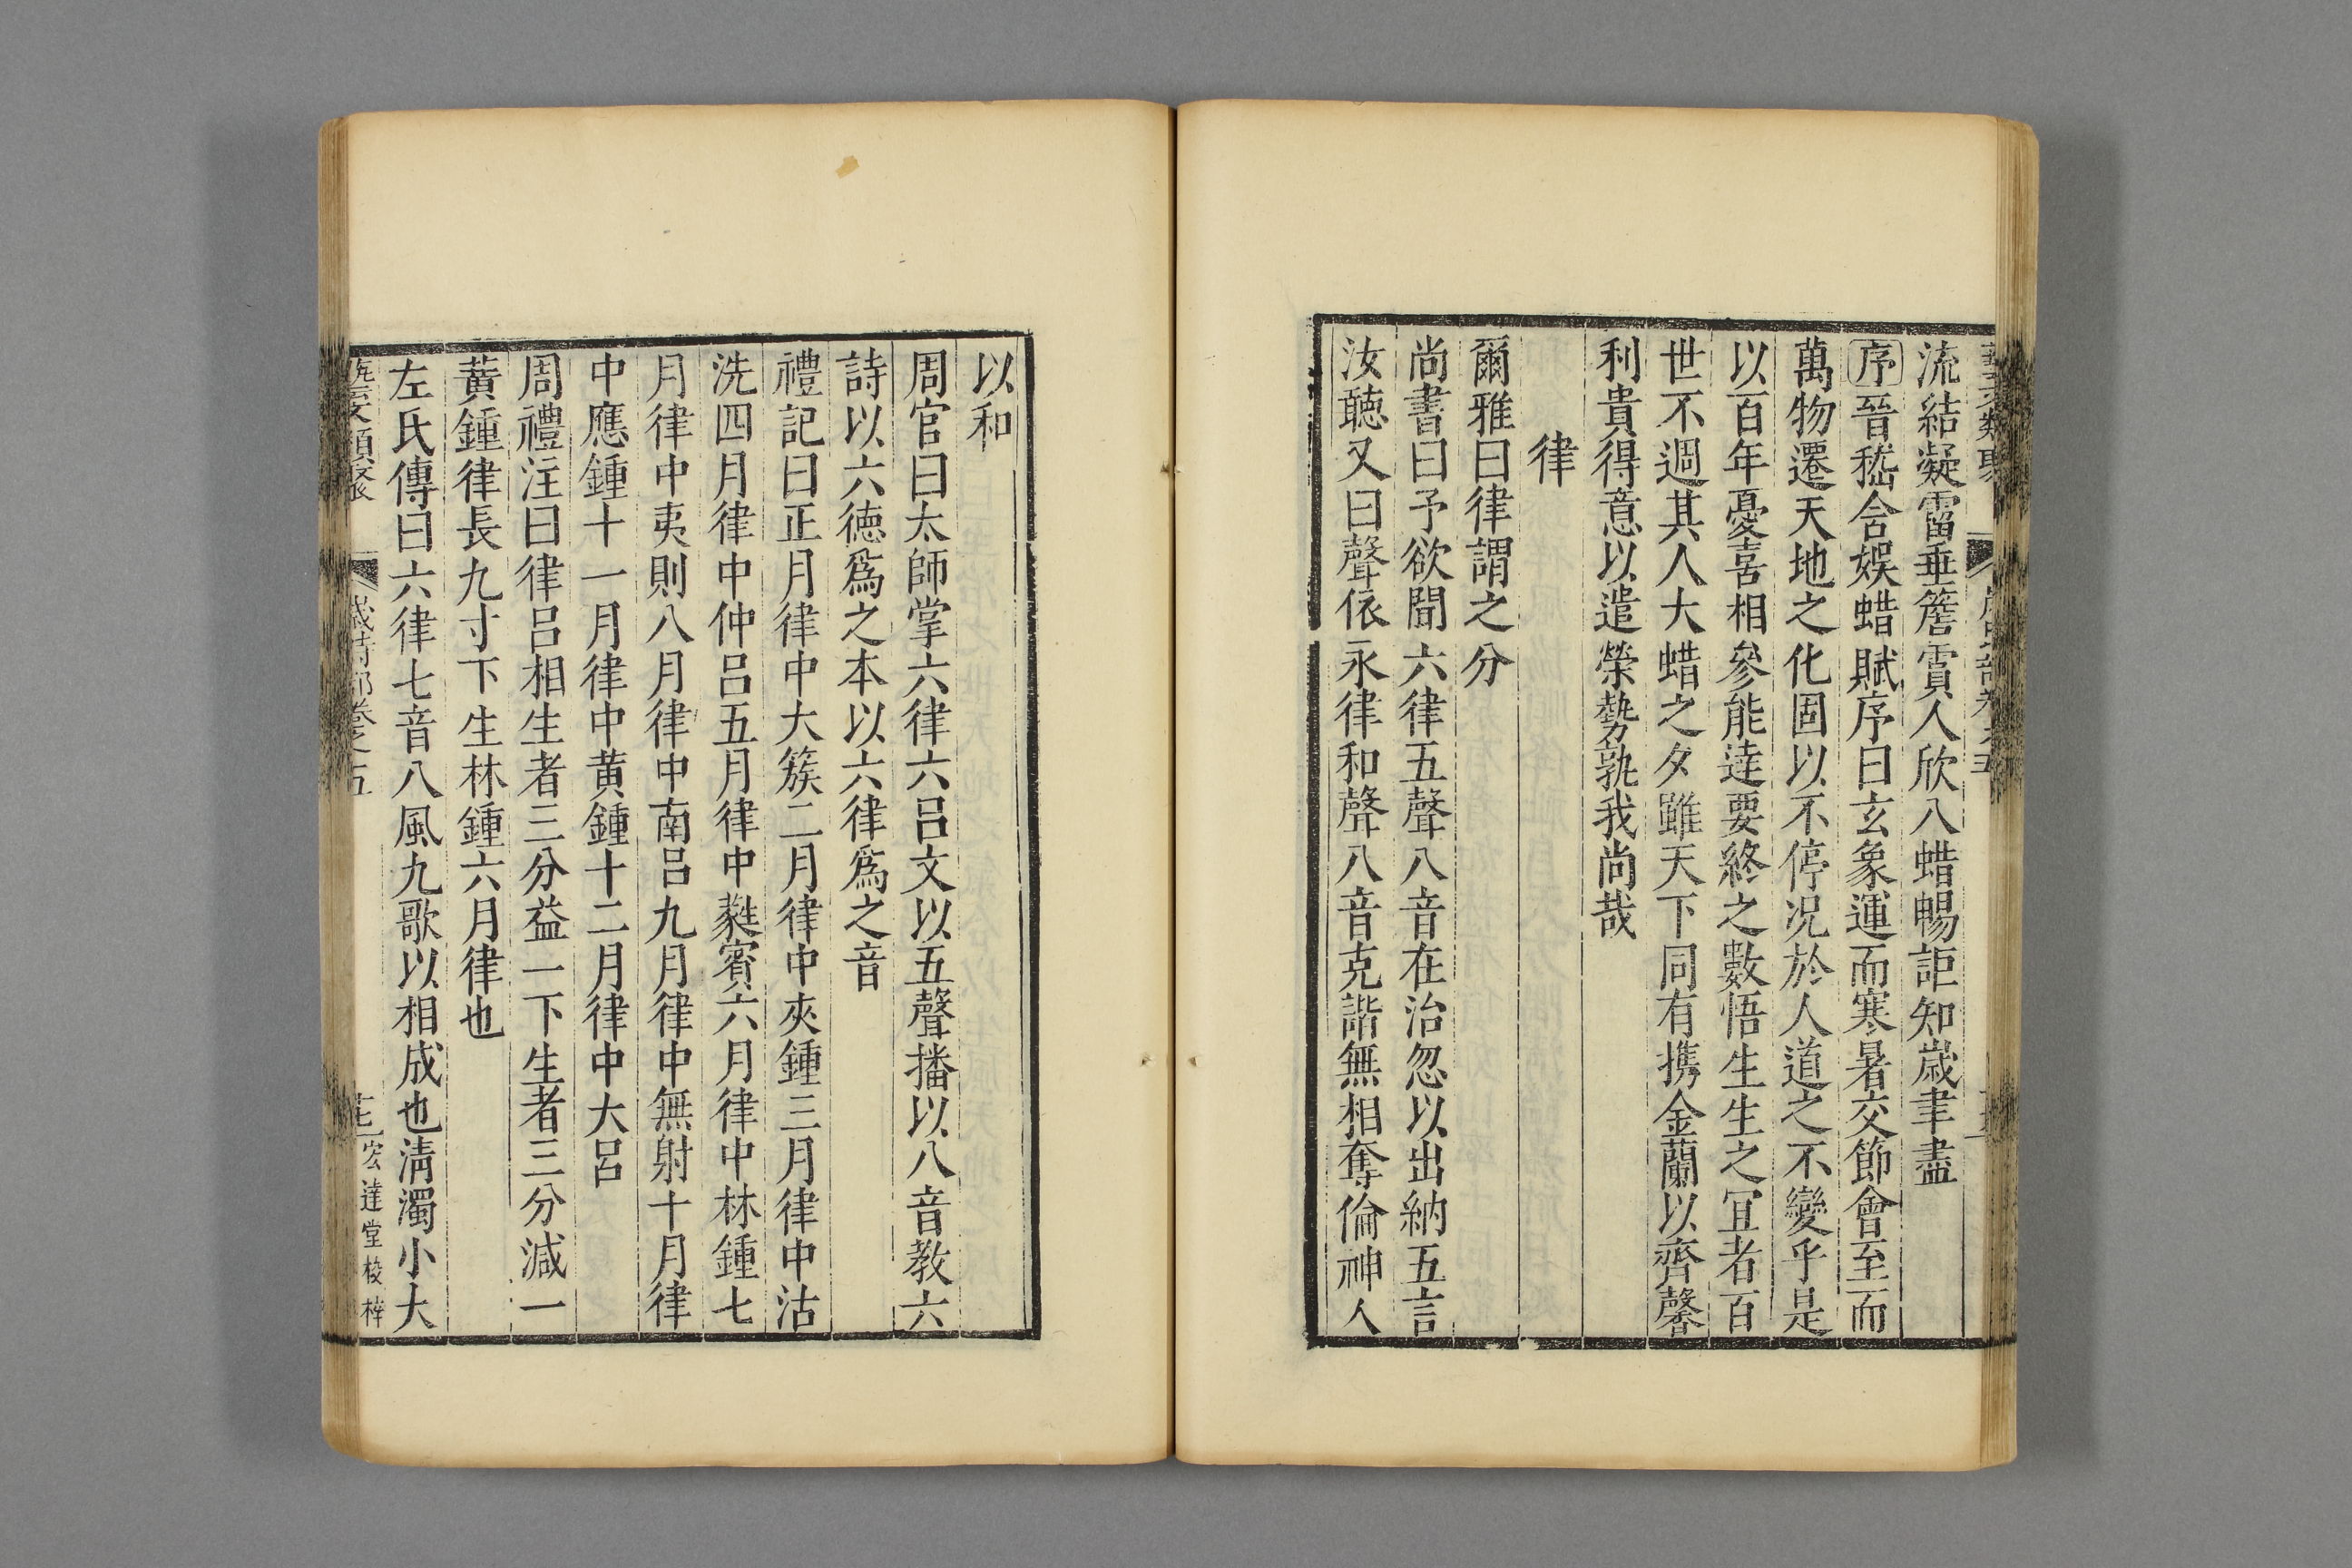 流結凝霤垂簷賓人欣八蜡暢詎知歲聿盡
序晉嵇含娛蜡賦序曰玄象運而寒暑交節會至而
萬物遷天地之化固以不停況於人道之不變乎是
以百年憂喜相參能達要終之數悟生生之冝者百
世不週其人大蜡之夕雖天下同有攜金蘭以齊馨
利貴得意以遣榮勢孰我尚哉
律
爾雅曰律謂之分
尚書曰予欲聞六律五聲八音在治忽以出納五言
汝聽又曰聲依永律和聲八音克諧無相奪倫神人
以和
周官曰太師掌六律六呂文以五聲播以八音教六
詩以六德爲之本以六律爲之音
禮記曰正月律中大簇二月律中夾鍾三月律中沽
洗四月律中仲呂五月律中蕤賓六月律中林鍾七
月律中夷則八月律中南呂九月律中無射十月律
中應鍾十一月律中黃鍾十二月律中大呂
周禮注曰律呂相生者三分益一下生者三分減一
黃鍾律長九寸下生林鍾六月律也
左氏傳曰六律七音八風九歌以相成也淸濁小大
藝文類聚 歲時部卷之五 宏達堂校梓